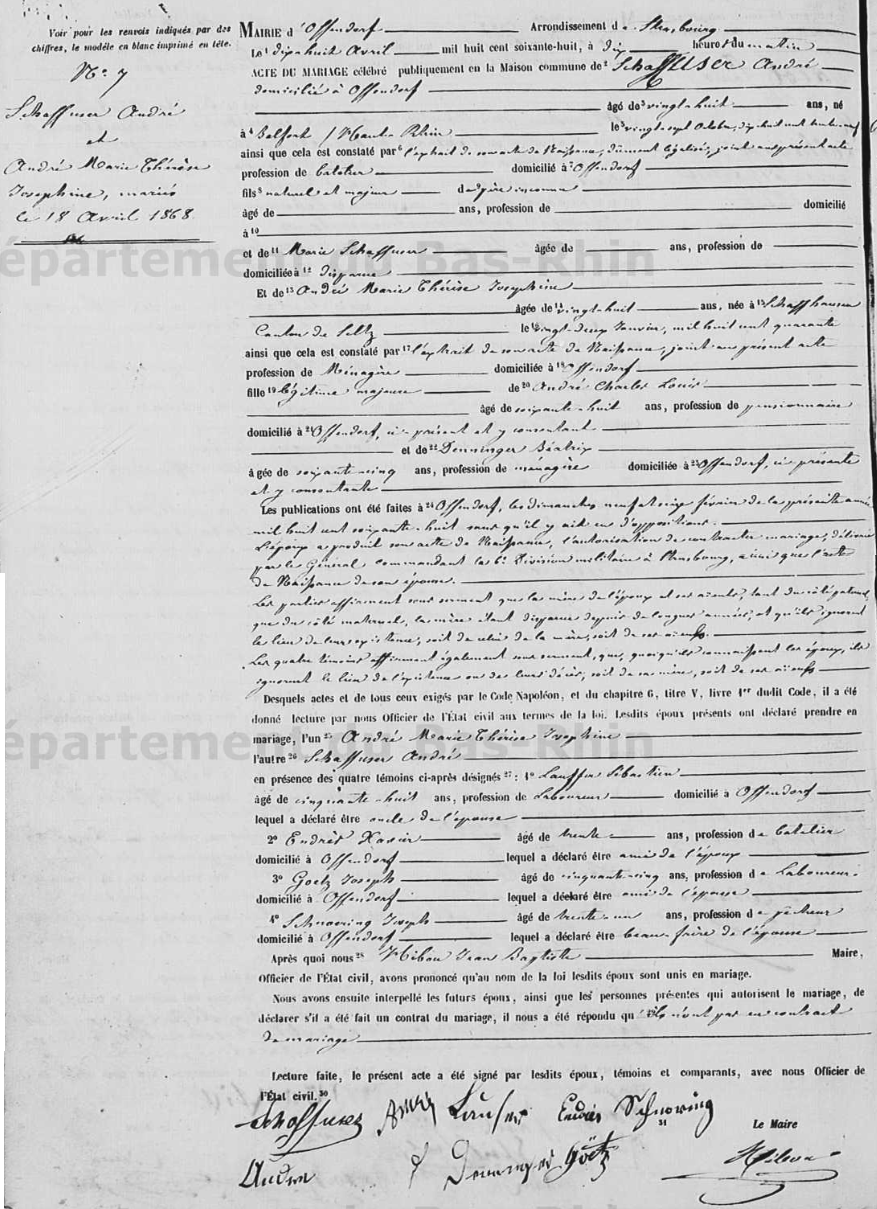 Voir pour les renvois indiqués par des
chiffres, le modèle en blanc imprimé en tête.
N.o 7
Schaffuser André
et
André Marie Thérèse
Josephine, mariés
le 18 Avril 1868
MAIRIE d'Offendorf Arrondissement de Strasbourg
Le 1 dix-huit Avril mil huit cent soixante-huit, à dix heures du matin
ACTE DU MARIAGE célébré publiquement en la Maison commune de 2 Schaffuser André
domicilié à Offendorf
âgé de 3 vingt-huit ans, né
à 4 Belfort, Haut-Rhin le 5 vingt-sept Octobre, dix huit cent trente neuf
ainsi que cela est constaté par 6 l'extrait de son acte de Naissance, dûment légalisé, joint au présent acte
profession de batelier domicilié à 7 Offendorf
fils 8 naturel et majeur de père inconnu
âgé de ans, profession de domicilié
à 10
et de 11 Marie Schaffuser âgée de ans, profession de
domiciliée à 12 disparue
Et de 13 André Marie Thérèse Josephine
âgée de 14 vingt-huit ans, née à 15 Schaffhausen
Canton de Seltz le 16 vingt-deux Janvier, mil huit cent quarante
ainsi que cela est constaté par 17 l'extrait de son acte de Naissance, joint au présent acte
profession de Ménagère domiciliée à 18 Offendorf
fille 19 légitime majeure de 20 André Charles Louis
âgé de soixante-huit ans, profession de pensionnaire
domicilié à 21 Offendorf, ci-présent et y consentant
et de 22 Denninger Béatrix
âgée de soixante-cinq ans, profession de ménagère domiciliée à 23 Offendorf, ci-présente
et y consentante
Les publications ont été faites à 24 Offendorf, les dimanches neuf et seize février de la présente année
mil huit cent soixante-huit sans qu'il y ait eu d'oppositions.
L'époux a produit son acte de Naissance, l'autorisation de contracter mariage, délivrée
par le Général commandant la 6e Division militaire à Strasbourg, ainsi que l'acte
de Naissance de son épouse.
Les parties affirment sous serment que la mère de l'époux et ses aïeuls, tant du côté
que du côté maternel, la mère étant disparue depuis de longues années, et qu'ils ignorent
le lieu de leur existence, soit de celui de la mère, soit de ses aïeuls.
Les quatre témoins affirment également sous serment, que, quoiqu'ils connaissent les époux, ils
ignorent le lieu de l'existence ou de leurs décès, soit de sa mère, soit de ses aïeuls
Desquels actes et de tous ceux exigés par le Code Napoléon, et du chapitre 6, titre V, livre 1er dudit Code, il a été
donné lecture par nous Officier de l'État civil aux termes de la loi. Lesdits époux présents ont déclaré prendre en
mariage, l'un 25 André Marie Thérèse Josephine
l'autre 26 Schaffuser André
en présence des quatre témoins ci-après désignés 27 : 1o Lauffer Sébastien
âgé de cinquante-huit ans, profession de Laboureur domicilié à Offendorf
lequel a déclaré être oncle de l'épouse
2o Endrès Xavier âgé de trente ans, profession de batelier
domicilié à Offendorf lequel a déclaré être ami de l'époux
3o Goetz Joseph âgé de cinquante-cinq ans, profession de Laboureur
domicilié à Offendorf lequel a déclaré être ami de l'épouse
4o Schnoering Joseph âgé de trente-un ans, profession de pêcheur
domicilié à Offendorf lequel a déclaré être beau-frère de l'épouse
Après quoi nous 28 Jean Baptiste Maire,
Officier de l'État civil, avons prononcé qu'au nom de la loi lesdits époux sont unis en mariage.
Nous avons ensuite interpellé les futurs époux, ainsi que les personnes présentes qui autorisent le mariage, de
déclarer s'il a été fait un contrat du mariage, il nous a été répondu qu' 29 ils n'ont pas eu contract
de mariage
Lecture faite, le présent acte a été signé par lesdits époux, témoins et comparants, avec nous Officier de
l'État civil. 30
Schaffuser André Endrès Schnoering
31
Le Maire
Andre Denninger Götz
épartement du Bas-Rhin
épartement du Bas-Rhin